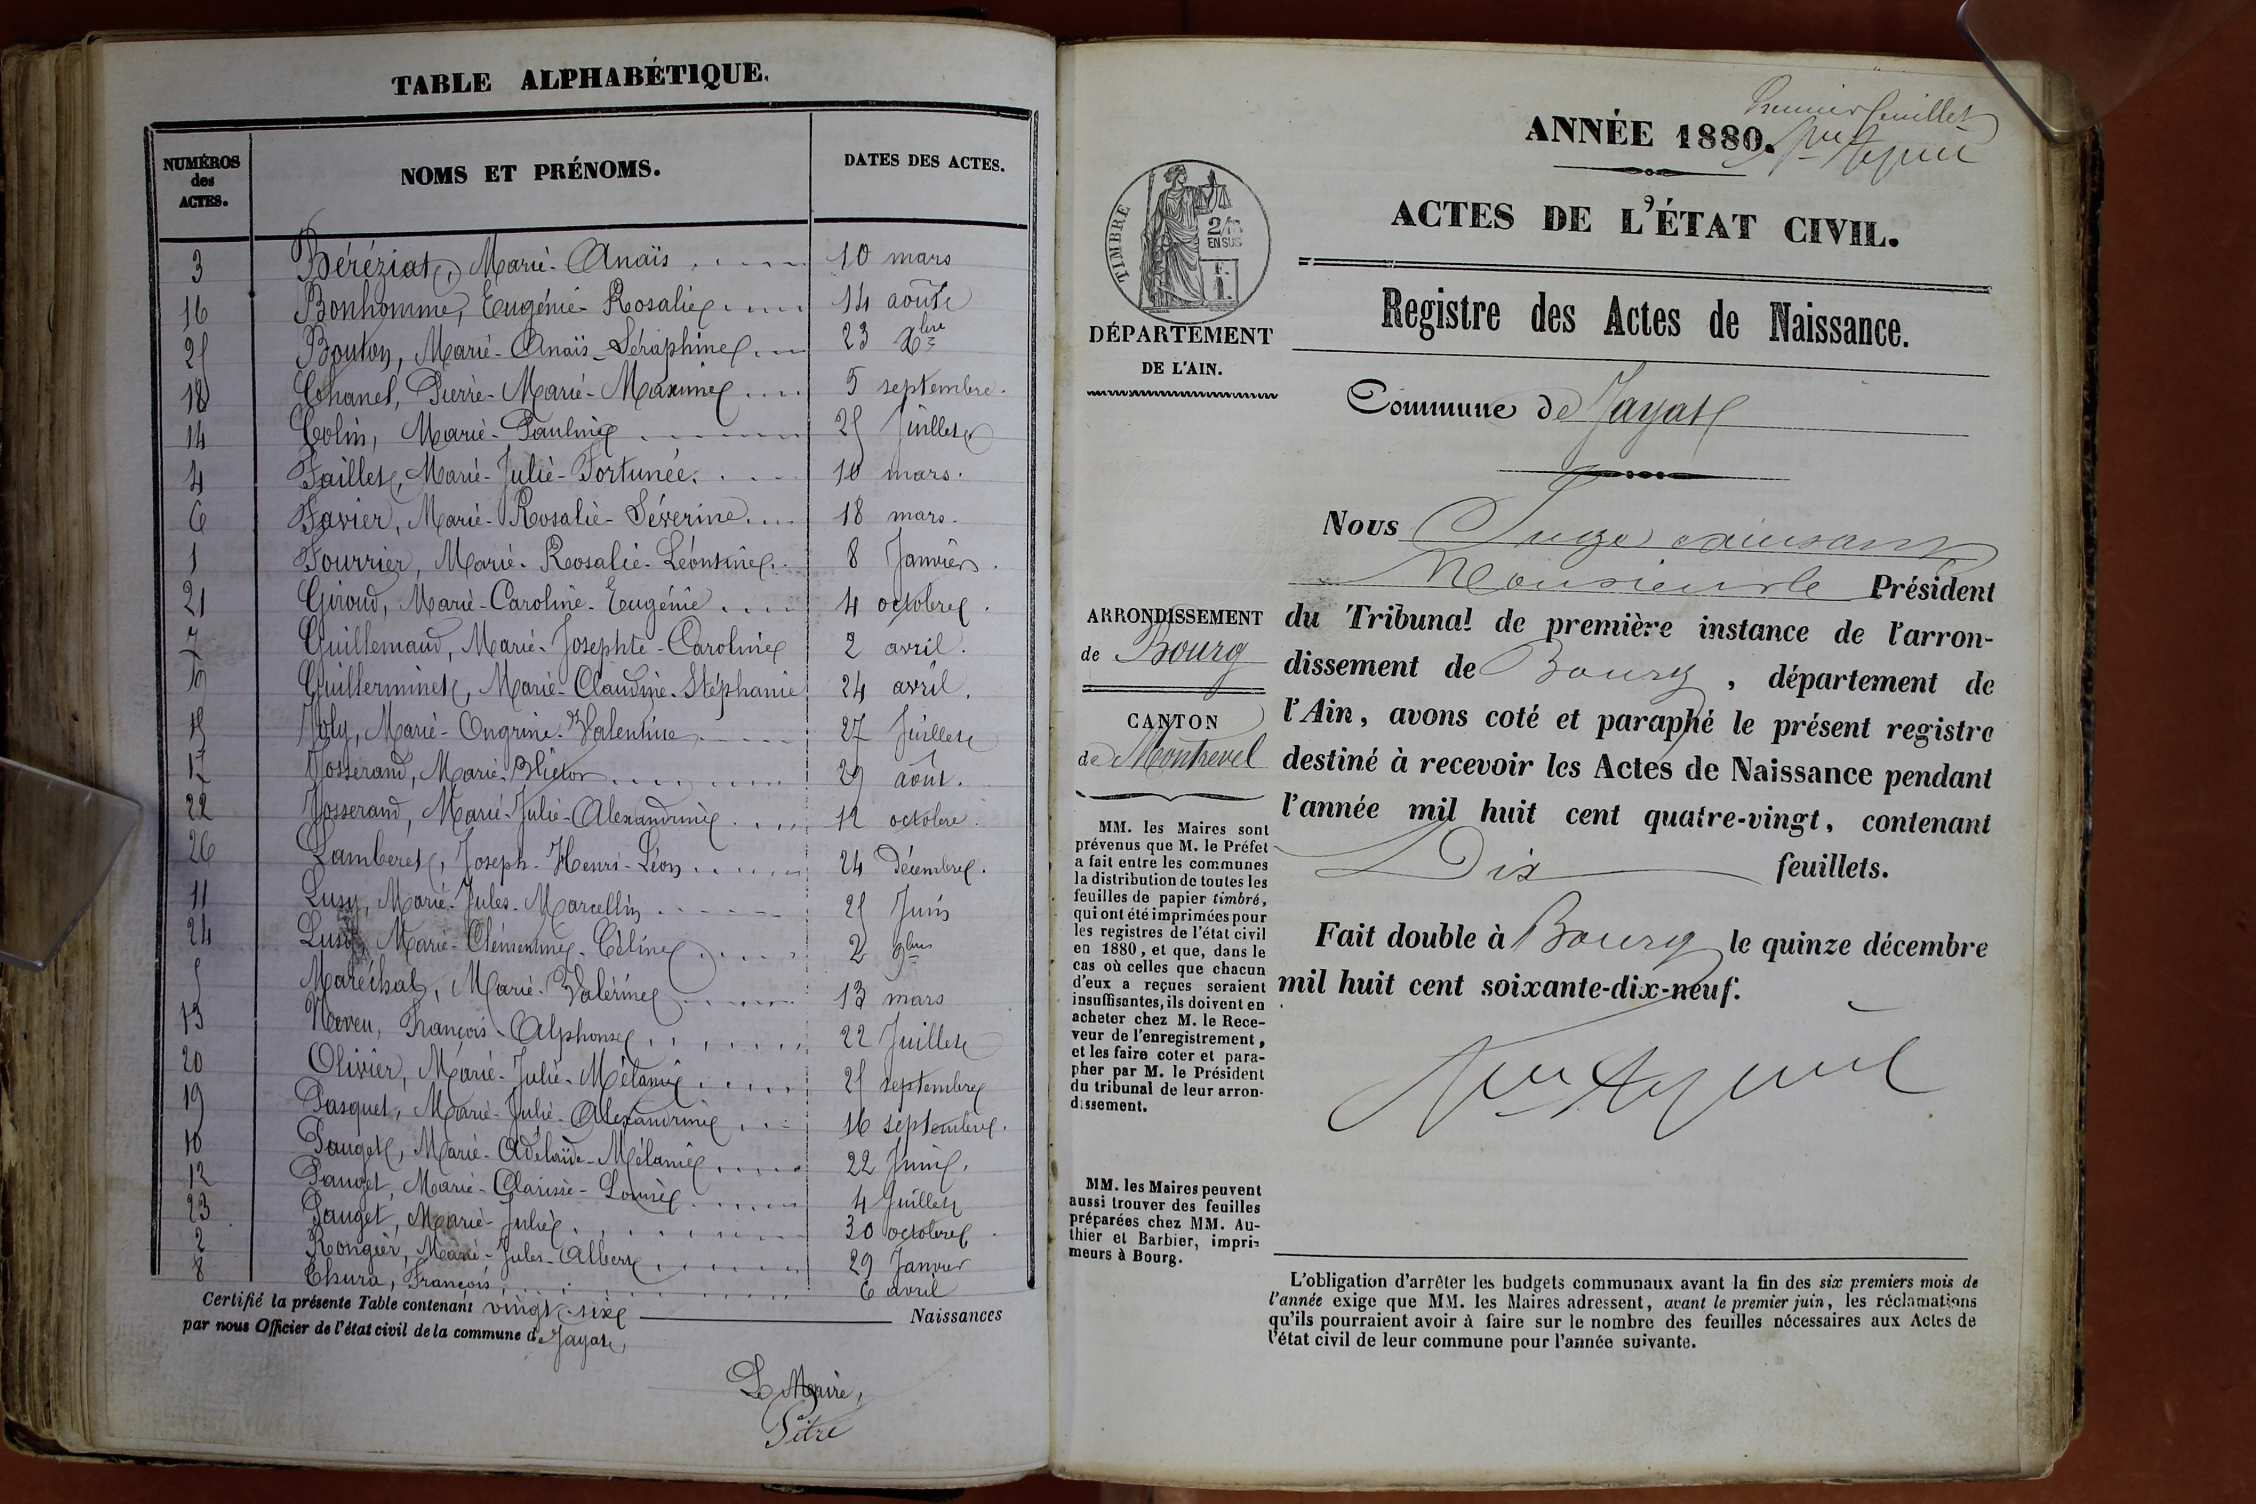 TABLE ALPHABÉTIQUE.
NUMÉROS des ACTES.
NOMS ET PRÉNOMS.
DATES DES ACTES.
3 Béréziat, Marie-Anaïs 10 mars
16 Bonhomme, Eugénie-Rosalie 14 août
25 Bouton, Marie-Anaïs-Séraphine 23 Xbre
18 Chanel, Pierre-Marie-Maxime 5 septembre.
14 Colin, Marie-Pauline 25 Juillet
4 Faillet, Marie-Julie-Fortunée. 10 mars.
6 Favier, Marie-Rosalie-Séverine 18 mars.
1 Fourrier, Marie-Rosalie-Léontine 8 Janvier.
21 Giroud, Marie-Caroline-Eugénie 4 octobre.
7 Guillemaud, Marie-Josephte-Caroline 2 avril.
9 Guillerminet, Marie-Claudine-Stéphanie 24 avril.
15 Joly, Marie-Ongrine-Valentine 27 Juillet
17 Josserand, Marie-Victor 29 août.
22 Josserand, Marie-Julie-Alexandrine 12 octobre.
26 Lamberet, Joseph-Henri-Léon 24 Décembre.
11 Lusy, Marie-Jules-Marcellin 25 Juin
24 Lusy, Marie-Clémentine-Céline 2 9bre
5 Maréchal, Marie-Valérine 13 mars
13 Neveu, François-Alphonse 22 Juillet
20 Olivier, Marie-Julie-Mélanie 25 septembre
19 Pasquet, Marie-Julie-Alexandrine 16 septembre.
10 Pauget, Marie-Adélaïde-Mélanie 22 Juin.
12 Pauget, Marie-Clarisse-Louise 4 Juillet
23 Pauget, Marie-Julie 30 octobre.
2 Rongier, Marie-Jules-Albert 29 Janvier
8 Chura, François 6 avril
Certifié la présente Table contenant vingt-six Naissances
par nous Officier de l'état civil de la commune de Jayat,
Le Maire,
Pitre
Premier feuillet
ANNÉE 1880.
ACTES DE L'ÉTAT CIVIL.
TIMBRE
2/10
EN SUS
F.
1
DÉPARTEMENT
DE L'AIN.
Registre des Actes de Naissance.
Commune de Jayat
Nous Juge
Monsieur le Président
ARRONDISSEMENT
de Bourg
du Tribunal de première instance de l'arron-
dissement de Bourg, département de
l'Ain, avons coté et paraphé le présent registre
destiné à recevoir les Actes de Naissance pendant
l'année mil huit cent quatre-vingt, contenant
Dix feuillets.
CANTON
de Montrevel
Fait double à Bourg le quinze décembre
mil huit cent soixante-dix-neuf.
MM. les Maires sont
prévenus que M. le Préfet
a fait entre les communes
la distribution de toutes les
feuilles de papier timbré,
qui ont été imprimées pour
les registres de l'état civil
en 1880, et que, dans le
cas où celles que chacun
d'eux a reçues seraient
insuffisantes, ils doivent en
acheter chez M. le Rece-
veur de l'enregistrement,
et les faire coter et para-
pher par M. le Président
du tribunal de leur arron-
dissement.
MM. les Maires peuvent
aussi trouver des feuilles
préparées chez MM. Au-
thier et Barbier, impri-
meurs à Bourg.
L'obligation d'arrêter les budgets communaux avant la fin des six premiers mois de
l'année exige que MM. les Maires adressent, avant le premier juin, les réclamations
qu'ils pourraient avoir à faire sur le nombre des feuilles nécessaires aux Actes de
l'état civil de leur commune pour l'année suivante.